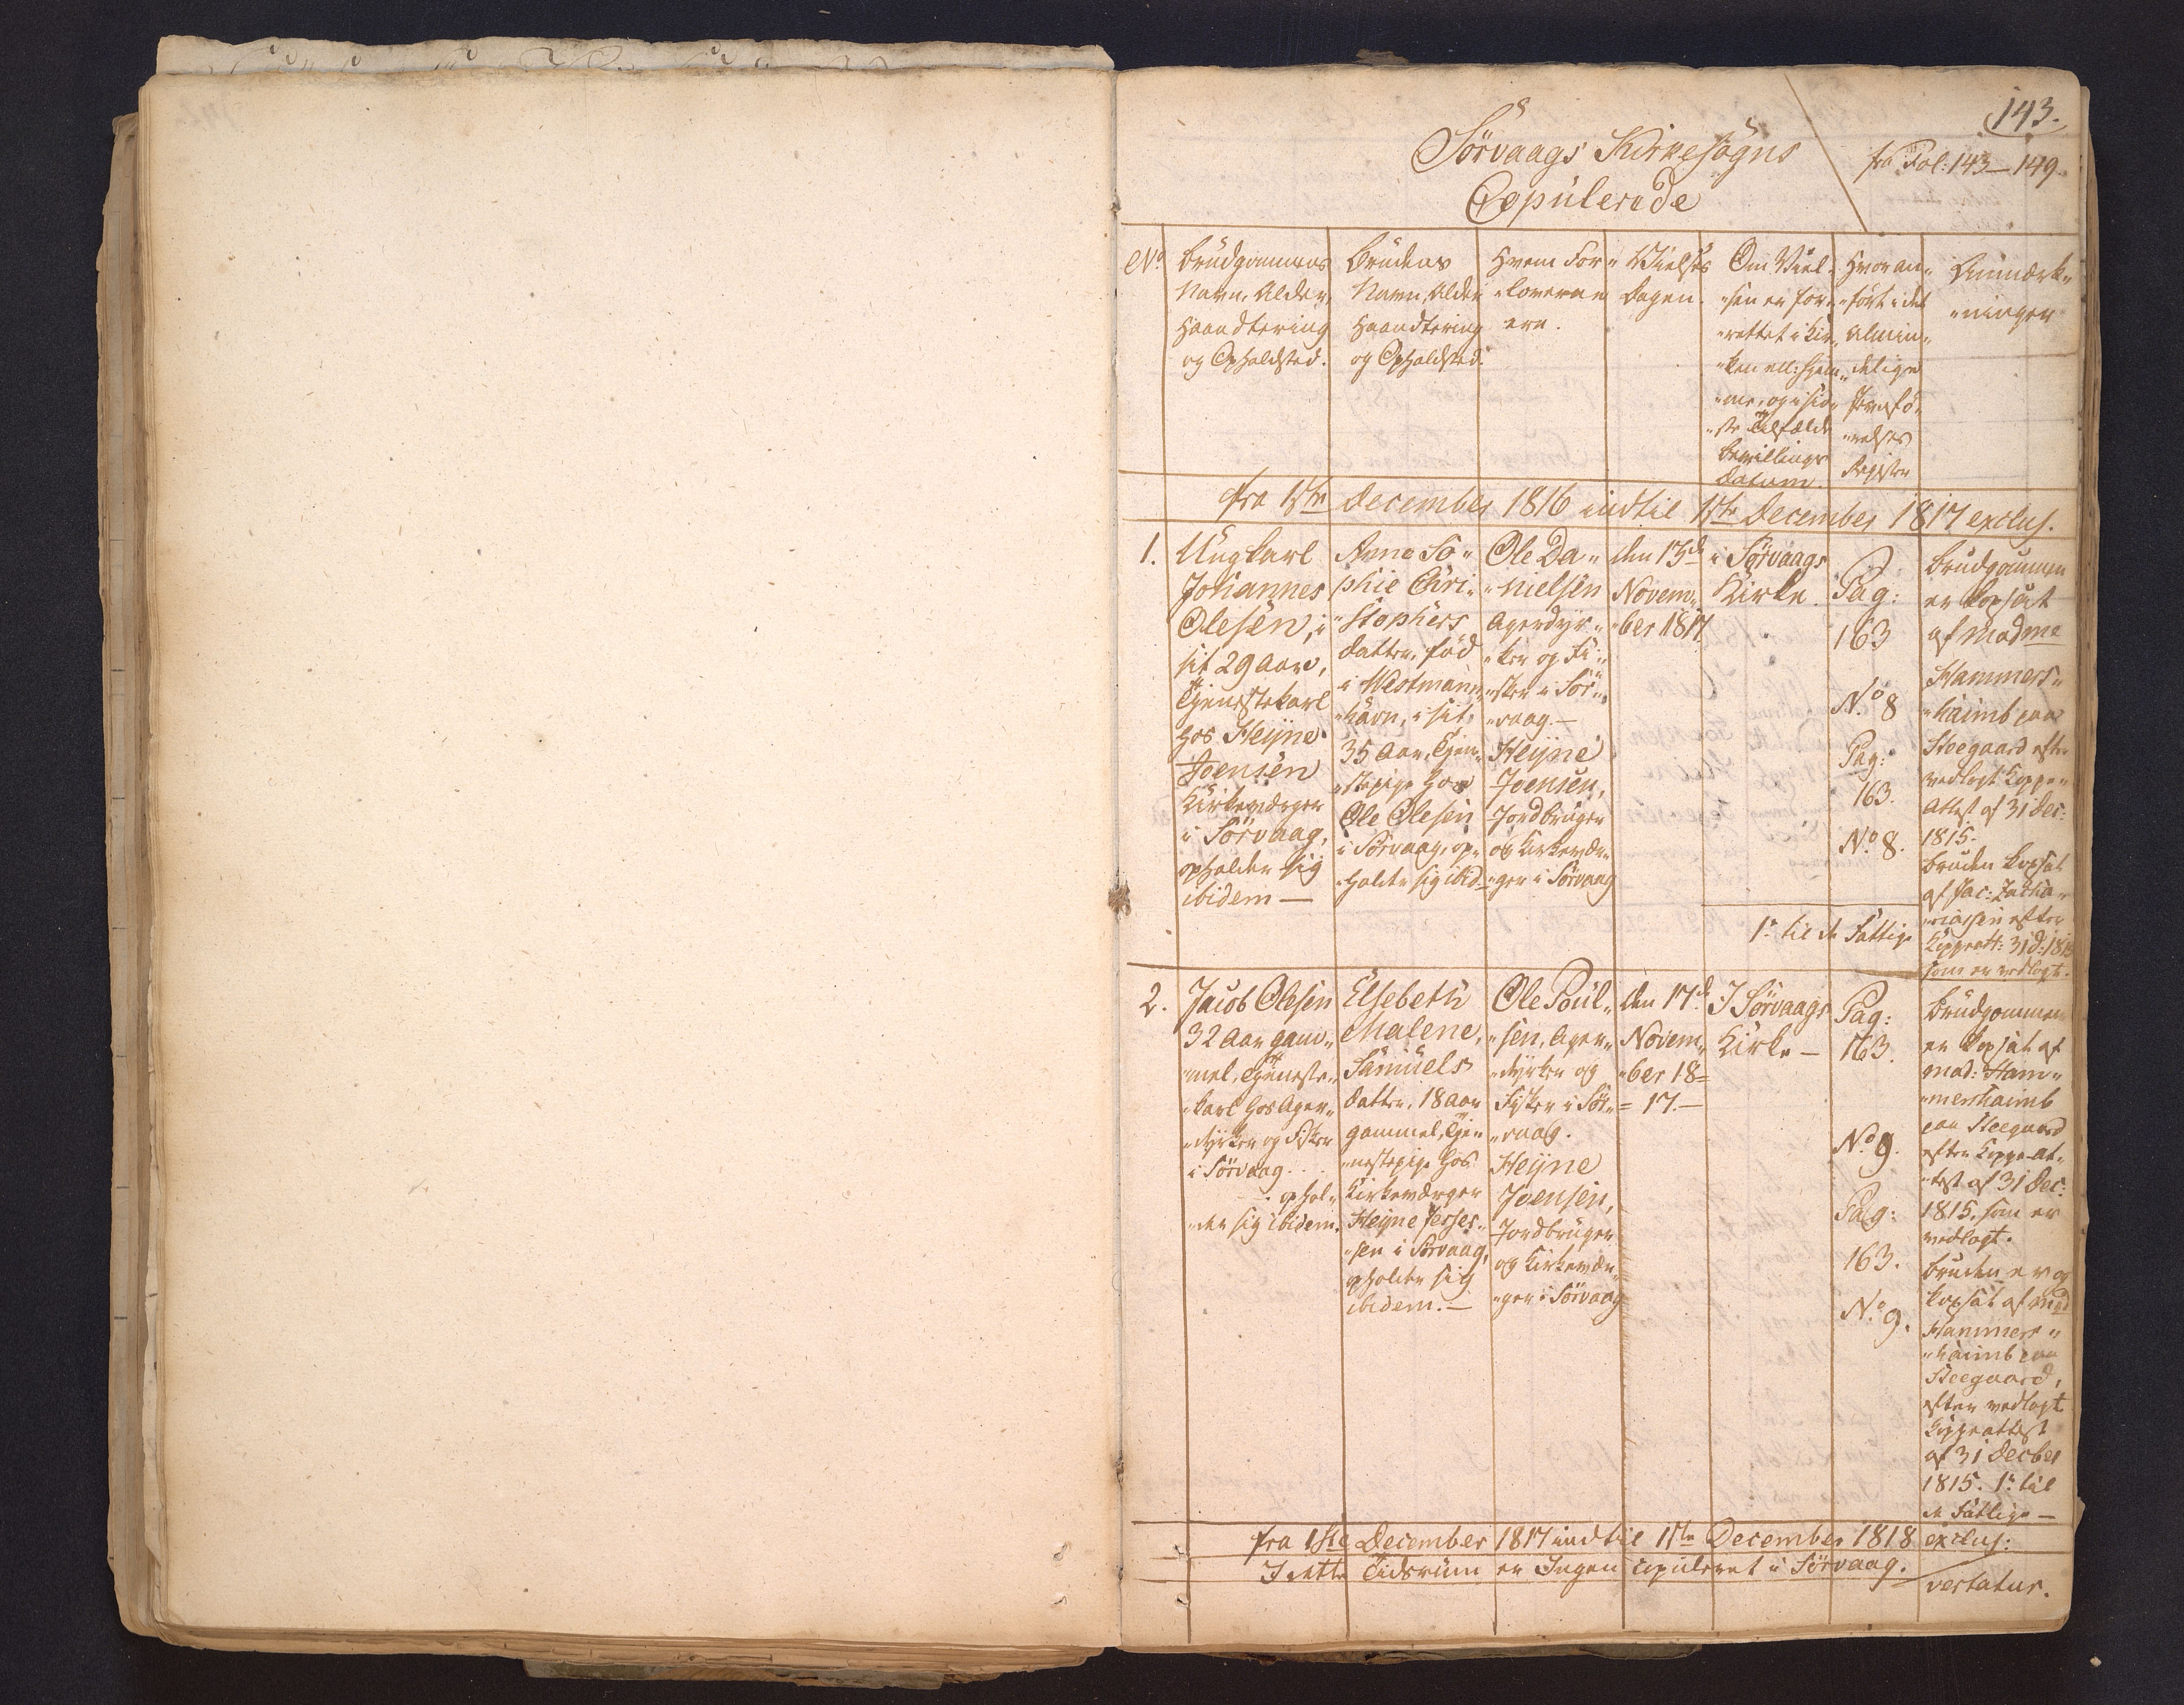 143.
Sörvaags Kirkesogns
fra Fol: 143–149.
Copulerede
No.
Brudgommens
Navn, Alder,
Haandtering
og Opholdsted.
Brudens
Navn, Alder
Haandtering
og Opholdsted.
Hvem For„
„loverne
ere.
Vielses
Dagen.
Om Viel„
„sen er for„
„rettet i Kir„
„ken ell: Hjem„
„me, og i sid„
„ste Tilfælde
Bevillings
Datum.
Hvor an„
„ført i det
Almin„
„delige
Jevnfö„
„relses
Register
Anmærk„
„ninger
fra 1ste December 1816 indtil 1ste December 1817 exclus.
1.
Ungkarl
Johannes
Olesen, i
sit 29 Aar,
Tjenestekarl
hos Heijne
Joensen
Kirkeværger
i Sörvaag,
opholder sig
ibidem —
Anna So„
phie Chri„
„stophers
datter, fød
i Westmann„
„havn, i sit
35 Aar, Tjen„
„stepige hos
Ole Olesen
i Sörvaag, op„
„holder sig ibid—
Ole Da„
„nielsen
Agerdyr„
„ker og Fi„
„sker i Sör„
„vaag.—
Heijne
Joensen,
Jordbruger
og Kirkevær„
„ger i Sörvaag
den 13de
Novem„
„ber 1817
i Sörvaags
Kirke.
Pag:
163
No. 8
Pag:
163.
No. 8.
Brudgommen
er Kopsat
af Madme
Hammers„
„haimb paa
Steegaard efter
vedlagt Koppe„
Attest af 31 Dec:
1815.
Bruden Kopsat
af Jac: Zacha„
„riasen efter
Koppeatt: 31 d: 1815
som er vedlagt.
til de Fattige
2.
Jacob Olesen
32 Aar gam„
„mel, Tjeneste„
„karl hos Ager„
„dyrker og Fisker
i Sörvaag . . .
ophol„
„der sig ibidem.
Elsebeth
Malene,
Samuels
datter, 18 Aar
gammel, Tjen
„nestepige hos
Kirkeværger
Heijne Joens„
„sen i Sörvaag,
opholder sig
ibidem.—
Ole Poul„
„sen, Ager„
„dyrker og
Fisker i Sör„
„vaag.
Heijne
Joensen,
Jordbruger
og Kirkevær„
„ger i Sörvaag
den 17de
Novem„
„ber 18=
= 17.—
I Sörvaags
Kirke —
Pag:
163.
No. 9.
Pag:
163.
No. 9.
Brudgommen
er Kopsat af
Mad: Ham„
„mershaimb
paa Steegaard
efter Koppe-At„
„test af 31 Dec:
1815, som er
vedlagt.
Bruden er og
Kopsat af Mad
Hammers„
„haimb paa
Steegaard,
efter vedlagt
Koppeattest
af 31 Decber
1815. til
de Fattige —
fra 1ste December 1817 indtil 1ste December 1818 exclus:
I dette Tidsrum er Ingen copuleret i Sörvaag.
vertatur.